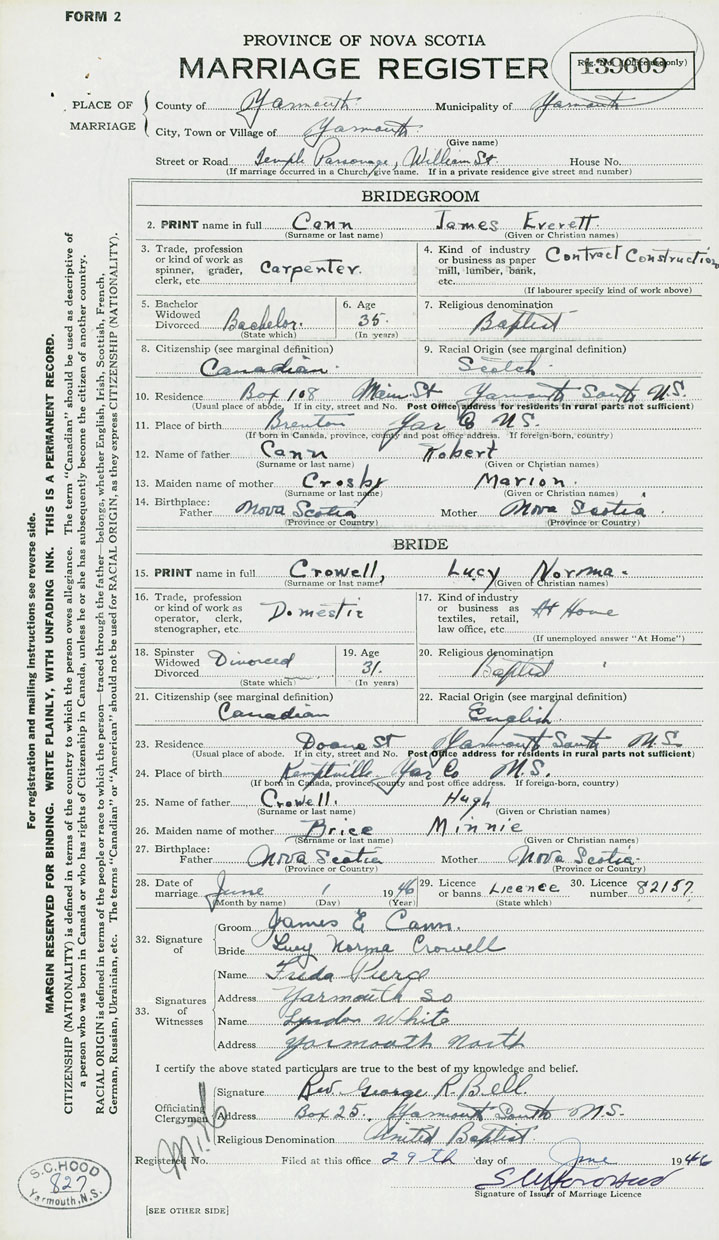 FORM 2
PROVINCE OF NOVA SCOTIA
MARRIAGE REGISTER
Reg. No. (Office use only)
139609
PLACE OF MARRIAGE
County of Yarmouth Municipality of Yarmouth
City, Town or Village of Yarmouth
(Give name)
Street or Road Temple Parsonage, William St House No.
(If marriage occurred in a Church, give name. If in a private residence give street and number)
BRIDEGROOM
2. PRINT name in full Cann James Everett.
(Surname or last name) (Given or Christian names)
3. Trade, profession or kind of work as spinner, grader, clerk, etc. Carpenter.
4. Kind of industry or business as paper mill, lumber, bank, etc. Contract Construction
(If labourer specify kind of work above)
5. Bachelor Widowed Divorced Bachelor.
(State which)
6. Age 35.
(In years)
7. Religious denomination
Baptist
8. Citizenship (see marginal definition)
Canadian.
9. Racial Origin (see marginal definition)
Scotch
10. Residence Box 108 Main St Yarmouth South N.S.
(Usual place of abode. If in city, street and No. Post Office address for residents in rural parts not sufficient)
11. Place of birth Brenton Yar Co N.S.
(If born in Canada, province, county and post office address. If foreign-born, country)
12. Name of father Cann Robert
(Surname or last name) (Given or Christian names)
13. Maiden name of mother Crosby Marion.
(Surname or last name) (Given or Christian names)
14. Birthplace: Father Nova Scotia Mother Nova Scotia.
(Province or Country) (Province or Country)
BRIDE
15. PRINT name in full Crowell, Lucy Norma.
(Surname or last name) (Given or Christian names)
16. Trade, profession or kind of work as operator, clerk, stenographer, etc. Domestic
17. Kind of industry or business as textiles, retail, law office, etc. At Home
(If unemployed answer "At Home")
18. Spinster Widowed Divorced Divorced
(State which)
19. Age 31.
(In years)
20. Religious denomination
Baptist
21. Citizenship (see marginal definition)
Canadian
22. Racial Origin (see marginal definition)
English.
23. Residence Doane St Yarmouth South N.S.
(Usual place of abode. If in city, street and No. Post Office address for residents in rural parts not sufficient)
24. Place of birth Kemptville Yar Co N.S.
(If born in Canada, province, county and post office address. If foreign-born, country)
25. Name of father Crowell. Hugh
(Surname or last name) (Given or Christian names)
26. Maiden name of mother Brice Minnie
(Surname or last name) (Given or Christian names)
27. Birthplace: Father Nova Scotia Mother Nova Scotia.
(Province or Country) (Province or Country)
28. Date of marriage June 1 1946
(Month by name) (Day) (Year)
29. Licence or banns Licence
(State which)
30. Licence number 82157
32. Signature of
Groom James E Cann.
Bride Lucy Norma Crowell
33. Signatures of Witnesses
Name Freda Pierce
Address Yarmouth So
Name Lyndon White
Address Yarmouth North
I certify the above stated particulars are true to the best of my knowledge and belief.
Officiating Clergyman
Signature Rev. George R. Bell.
Address Box 25. Yarmouth South N.S.
Religious Denomination United Baptist.
Registered No. Filed at this office 29th day of June 1946
Signature of Issuer of Marriage Licence
[SEE OTHER SIDE]
S.C. HOOD
827
Yarmouth, N.S.
For registration and mailing instructions see reverse side.
MARGIN RESERVED FOR BINDING. WRITE PLAINLY, WITH UNFADING INK. THIS IS A PERMANENT RECORD.
CITIZENSHIP (NATIONALITY) is defined in terms of the country to which the person owes allegiance. The term "Canadian" should be used as descriptive of
a person who was born in Canada or who has rights of Citizenship in Canada, unless he or she has subsequently become the citizen of another country.
RACIAL ORIGIN is defined in terms of the people or race to which the person—traced through the father—belongs, whether English, Irish, Scottish, French,
German, Russian, Ukrainian, etc. The terms "Canadian" or "American" should not be used for RACIAL ORIGIN, as they express CITIZENSHIP (NATIONALITY).